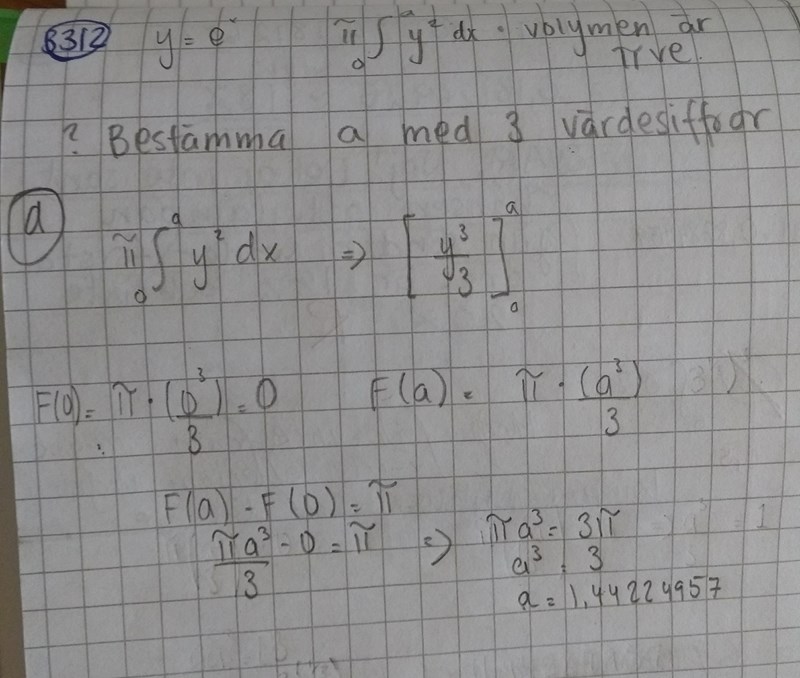 3312 y = eˣ π ₀∫ᵃ y² dx . volymen är
πve.
? Bestämma a med 3 värdesiffror
a
π ₀∫ᵃ y² dx ⇒ [y³/3]ₐᵃ
F(0) = π · (0³)/3 = 0 F(a) = π · (a³)/3
F(a) - F(0) = π
πa³/3 - 0 = π ⇒ πa³ = 3π
a³ = 3
a = 1,44224957